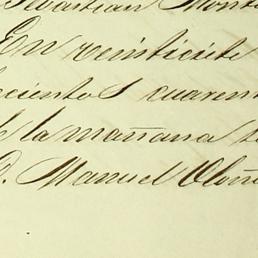 Sebastian Mont
En veintisiete
ecientos cuarent
e la mañana
D. Manuel